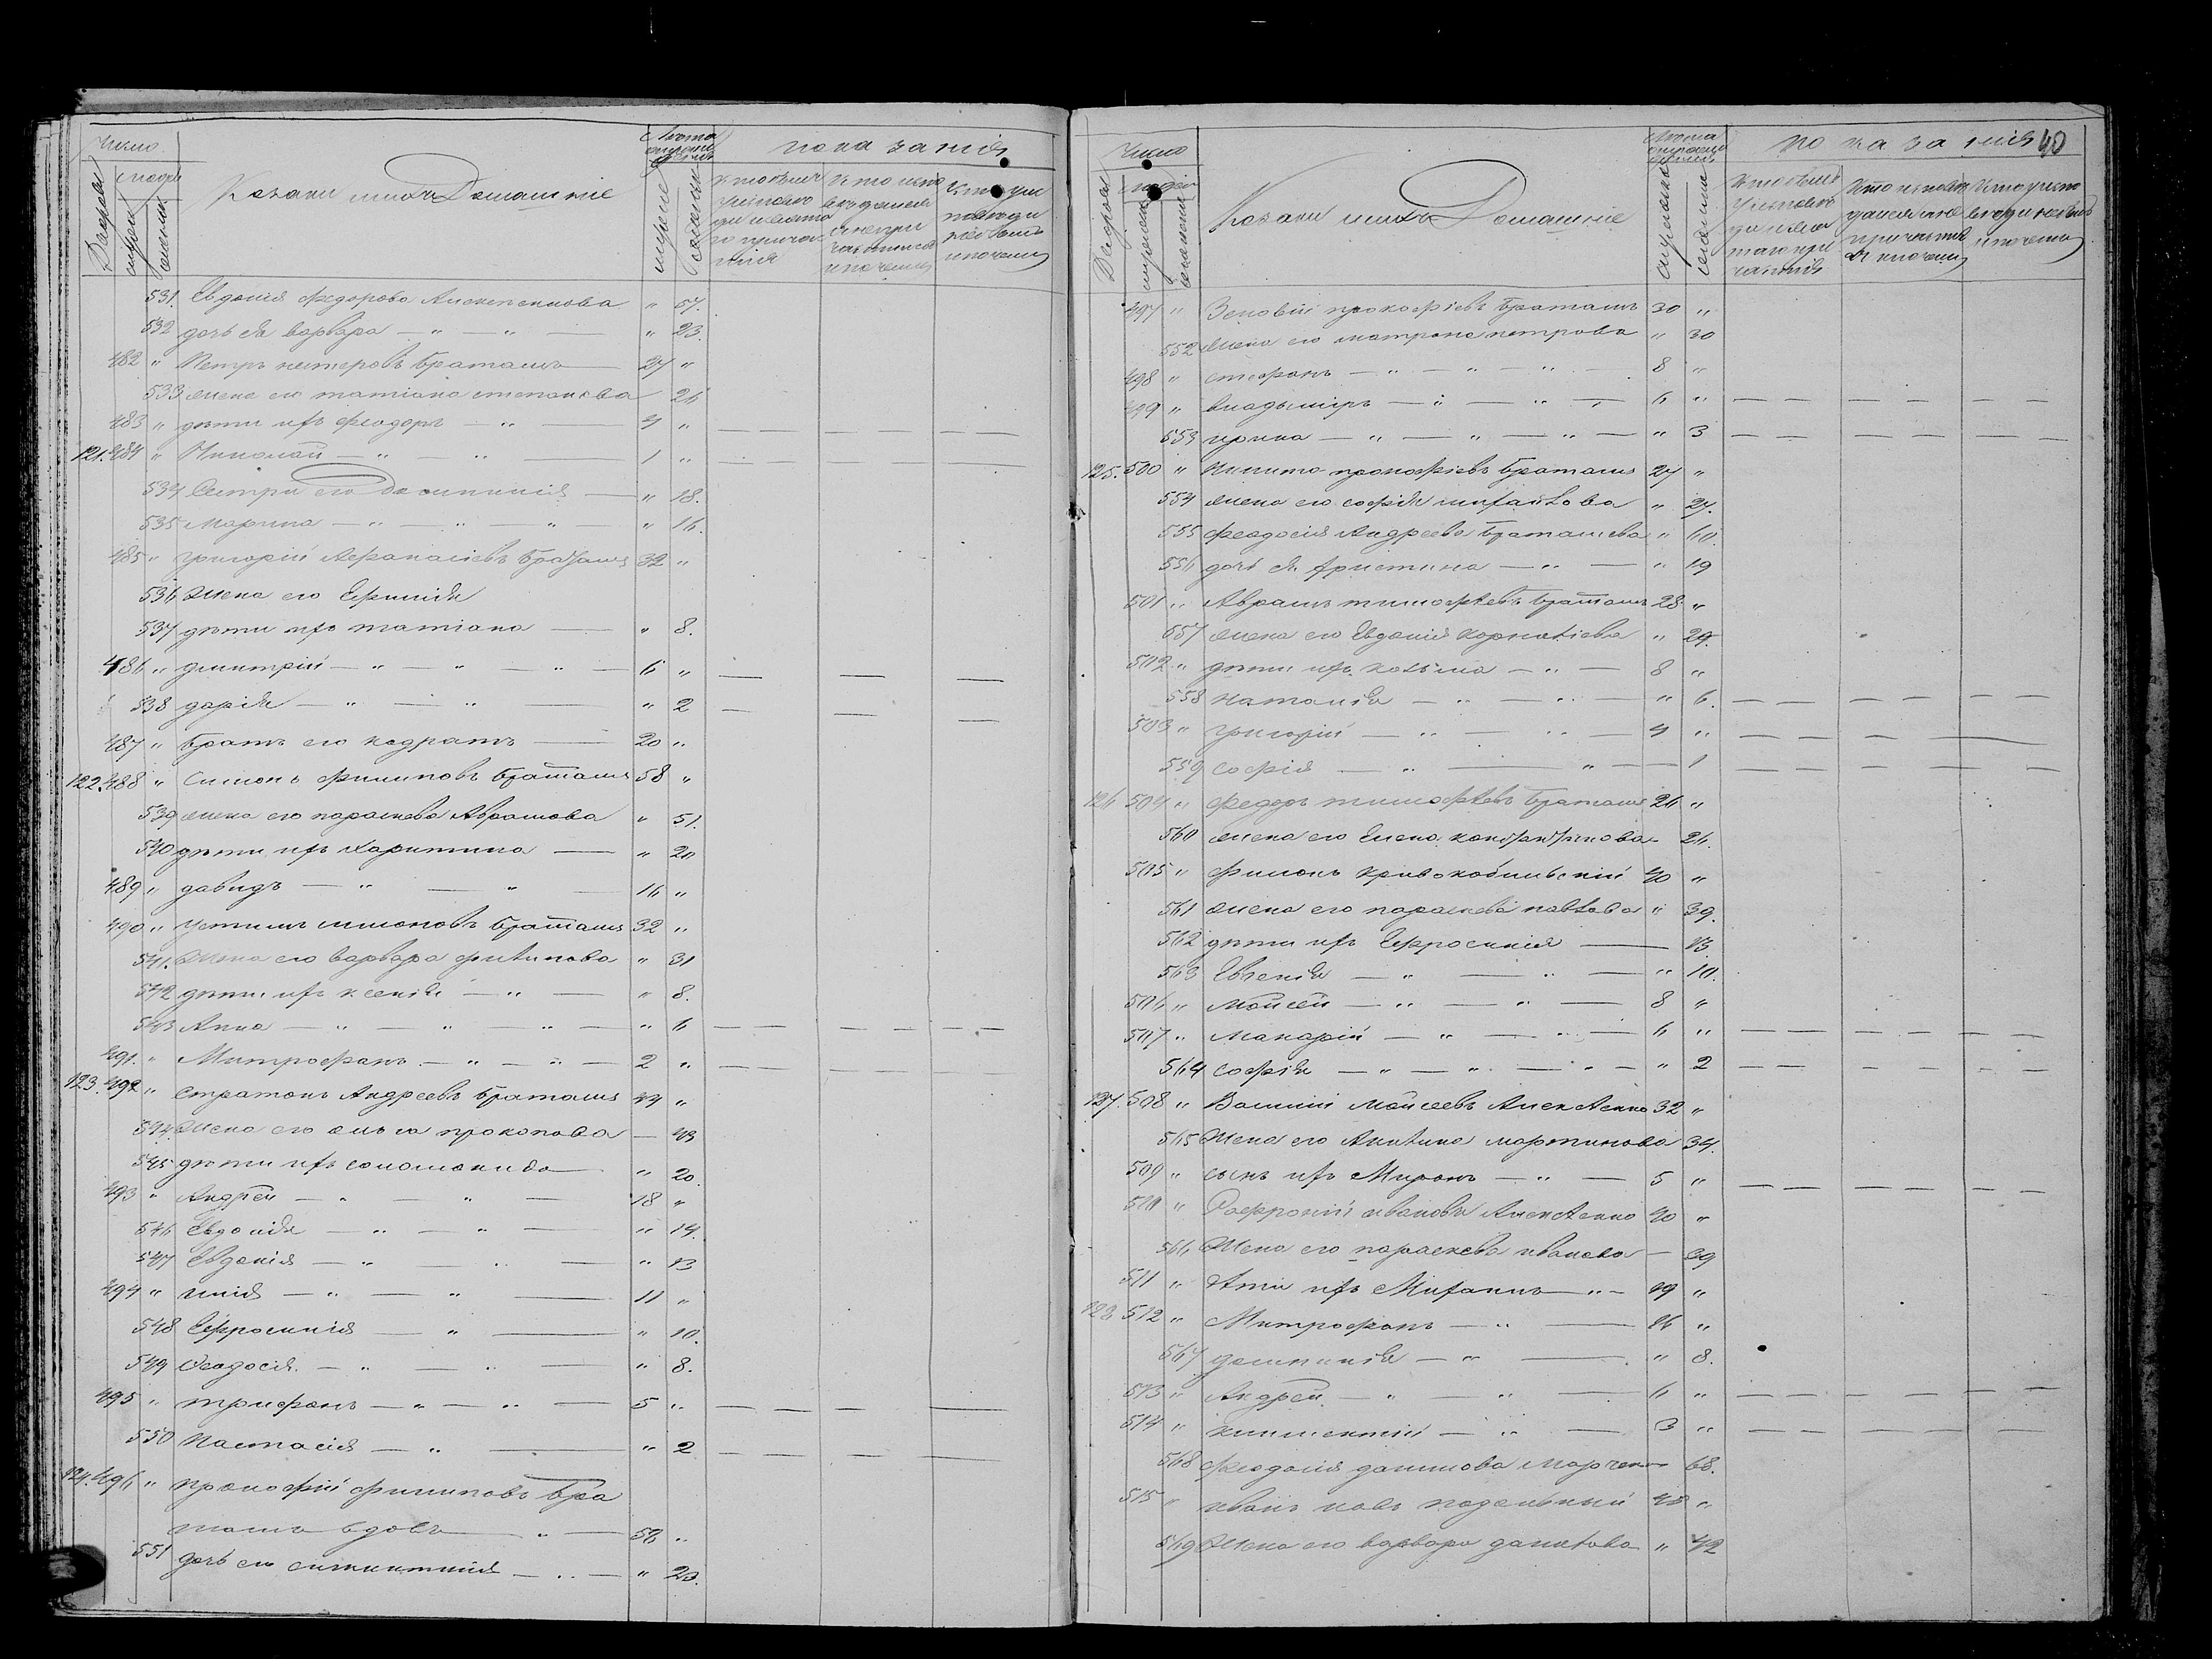 Число
людей
Дворовъ
мужеска
женска
Козаки и ихъ Домашніе
Лѣта отъ рожденія
мужес
женски
показанія
531. Евдокія Федорова Алексеенкова " 57.
532 дочь ея варвара — " — " — " 23.
482 " Петръ петровъ Браташъ — 27 "
533 жена его татіана степанова 26
483 " дѣти ихъ феодоръ — " — 4 "
121. 484 " Николай — " — " — 1 "
534 Сестри его Домникія — " 18.
535 Марина — " — " — " " 16.
485 " григорій Афанасіевъ Браташъ 32 "
536 Жена его Ефимія
537 дѣти ихъ татіана — " 8.
486 " димитрій — " — " — " — 6 "
538 дарія — " — " — " 2
487 " братъ его кодратъ — 20 "
122. 488 " Симонъ филиповъ Браташъ 58 "
539 жена его параскева Аврамова " 51.
540 дѣти ихъ Харитина — " 20
489 " давидъ — " — " — 16 "
490 " устимъ симоновъ Браташъ 32 "
541. Жена его варвара филипова " 31
542 дѣти ихъ ксенія — " — " 8.
543 Анна — " — " — " — " 6
491. " Митрофанъ — " — " — 2 "
123. 492 " Стратонъ Андреевъ Браташъ 44 "
544. Жена его прокопова — 43
545 дѣти ихъ соломонида — " 20.
493 " Андрей — " — " — 18 "
546 Евдокія — " — " — " 14.
547 Евдокія — " — " — " 13
494 " илія — " — " — 11 "
548 Ефросинія — " — " 10.
549 Феодосія — " — " — " 8.
495 " трифонъ — " — " — 5 "
550 Настасія — " — " 2
124. 496 " прокофій филиповъ Бра
ташъ вдовъ — " — 56 "
551 дочь его — " — " 20.
Число
людей
Дворовъ
мужеска
женска
Козаки и ихъ Домашніе
Лѣта отъ рожденія
мужеска
женски
показанія 40
497 " Зеновій прокофіевъ Браташъ 30 "
552 жена его матрона петрова " 30
498 " стефанъ — " — " — " — 8 "
499 " владыміръ — " — " — 6 "
553 ирина — " — " — " — " 3
125. 500 " Никита прокофіевъ Браташъ 27 "
554 жена его софія михайлова " 27.
555 феодосія Андреева Браташева " 60.
556 дочь ея христина — " — " 19
501 " Аврамъ тимофѣевъ Браташъ 28 "
557 жена его Евдокія корнѣліева " 29.
502 " дѣти ихъ козьма — " — 8 "
558 наталія — " — " — " 6.
503 " григорій — " — " — 4 "
559 софія — " — " — 1
126 504 " федоръ тимофѣевъ Браташъ 26 "
560 жена его Елена константинова 26.
505 " филонъ кривокобильскій 40 "
561 жена его параскева павлова " 39.
562 дѣти ихъ Ефросинія — 13.
563 Евгенія — " — " — " 10.
506 " Мойсей — " — " — 8 "
507 " Макарій — " — " — 6 "
564 софія — " — " — " — " 2
127. 508 " Василій Мойсеевъ Алексѣенко 32 "
565 Жена его Акилина мартинова 34.
509 " сынъ ихъ Миронъ — " — 5 "
510 " Софроній ивановъ Алексѣенко 40 "
566 Жена его параскева иванова — 39
511 " дѣти ихъ Михаилъ — " — 19 "
128 512 " Митрофанъ — " — 16 "
567 домникія — " — " 8.
513 " Андрей — " — " — 6 "
514 " климентій — " — 3 "
568 феодосія данилова Марченко 68.
515 " иванъ 45 "
569 Жена его варвара данилова " 42